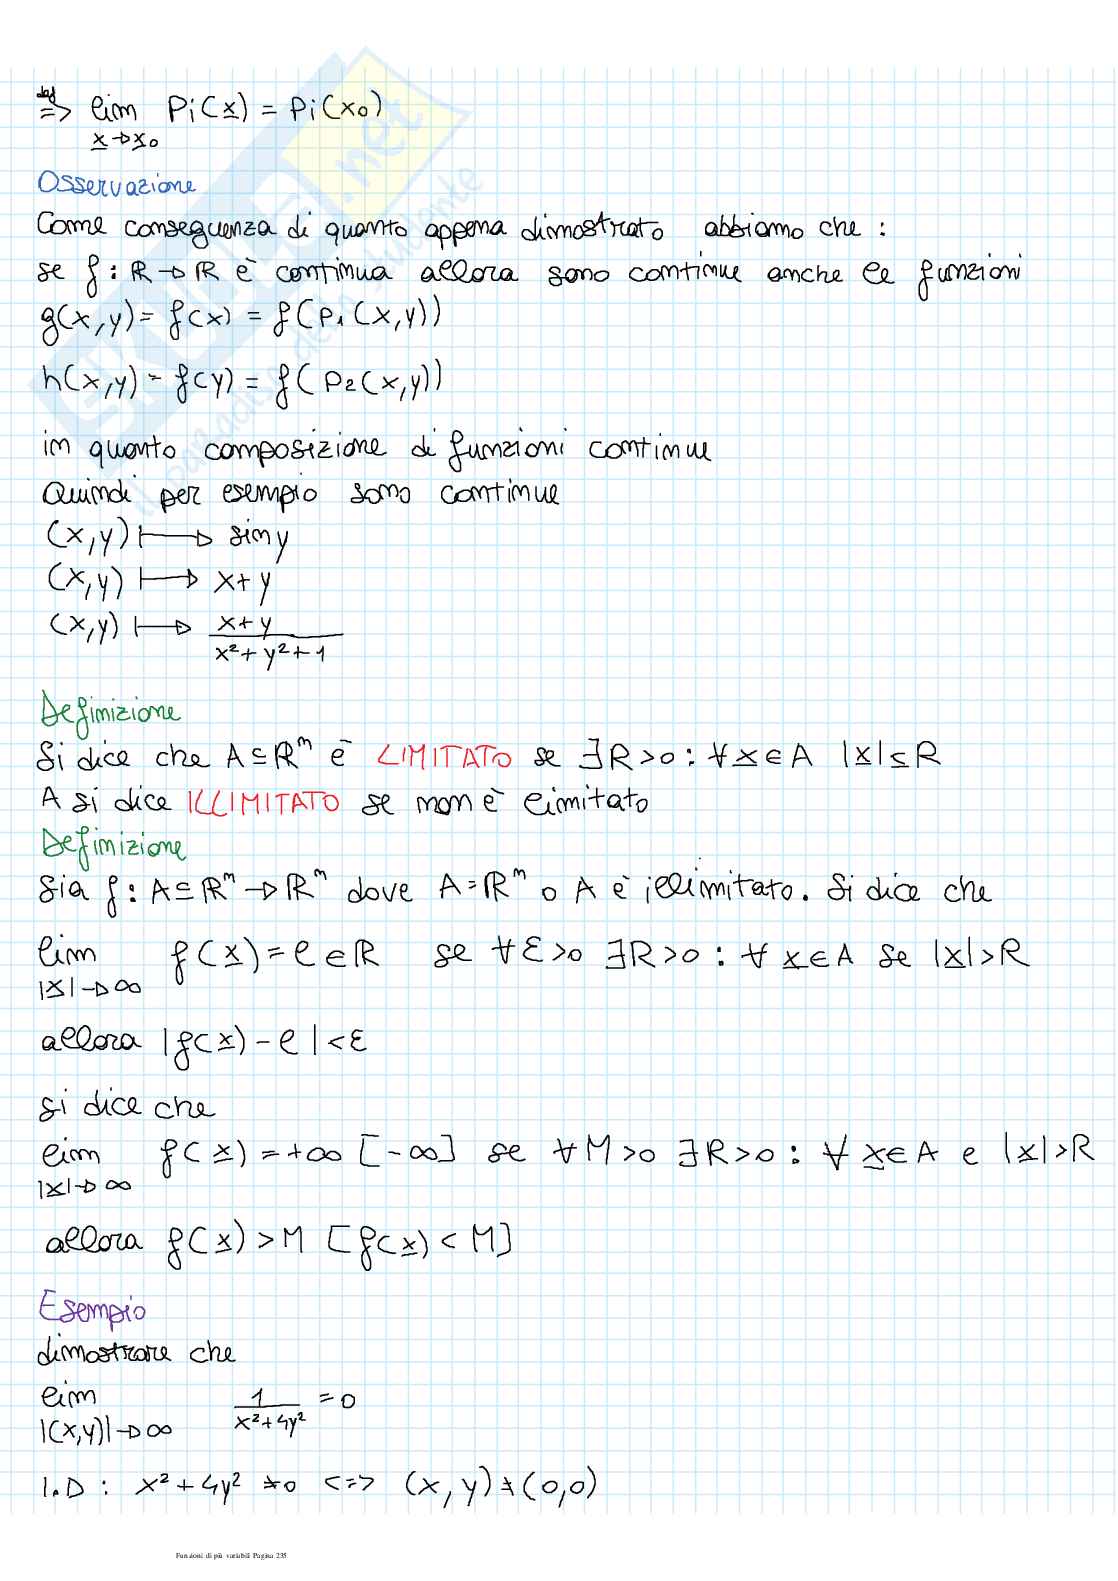 def
=> lim Pi(x) = Pi(x₀)
x→x₀
Osservazione
Come conseguenza di quanto appena dimostrato abbiamo che :
se f : ℝ → ℝ è continua allora sono continue anche le funzioni
g(x,y) = f(x) = f(P₁(x,y))
h(x,y) = f(y) = f(P₂(x,y))
in quanto composizione di funzioni continue
Quindi per esempio sono continue
(x,y) ↦ sin y
(x,y) ↦ x+y
(x,y) ↦ x+y
x²+y²+1
Definizione
Si dice che A⊆ℝⁿ è LIMITATO se ∃R>0 : ∀x∈A |x|≤R
A si dice ILLIMITATO se non è limitato
Definizione
Sia f : A⊆ℝⁿ → ℝⁿ dove A=ℝⁿ o A è illimitato. Si dice che
lim f(x) = l∈ℝ se ∀ε>0 ∃R>0 : ∀ x∈A se |x|>R
|x|→∞
allora |f(x) - l| < ε
si dice che
lim f(x) = +∞ [-∞] se ∀M>0 ∃R>0 : ∀ x∈A e |x|>R
|x|→∞
allora f(x) > M [f(x) < M]
Esempio
dimostrare che
lim 1 = 0
|(x,y)|→∞ x²+4y²
I.D : x²+4y² ≠0 <=> (x,y)≠(0,0)
Funzioni di più variabili Pagina 235
SKUOLA.net
il paradiso dello studente